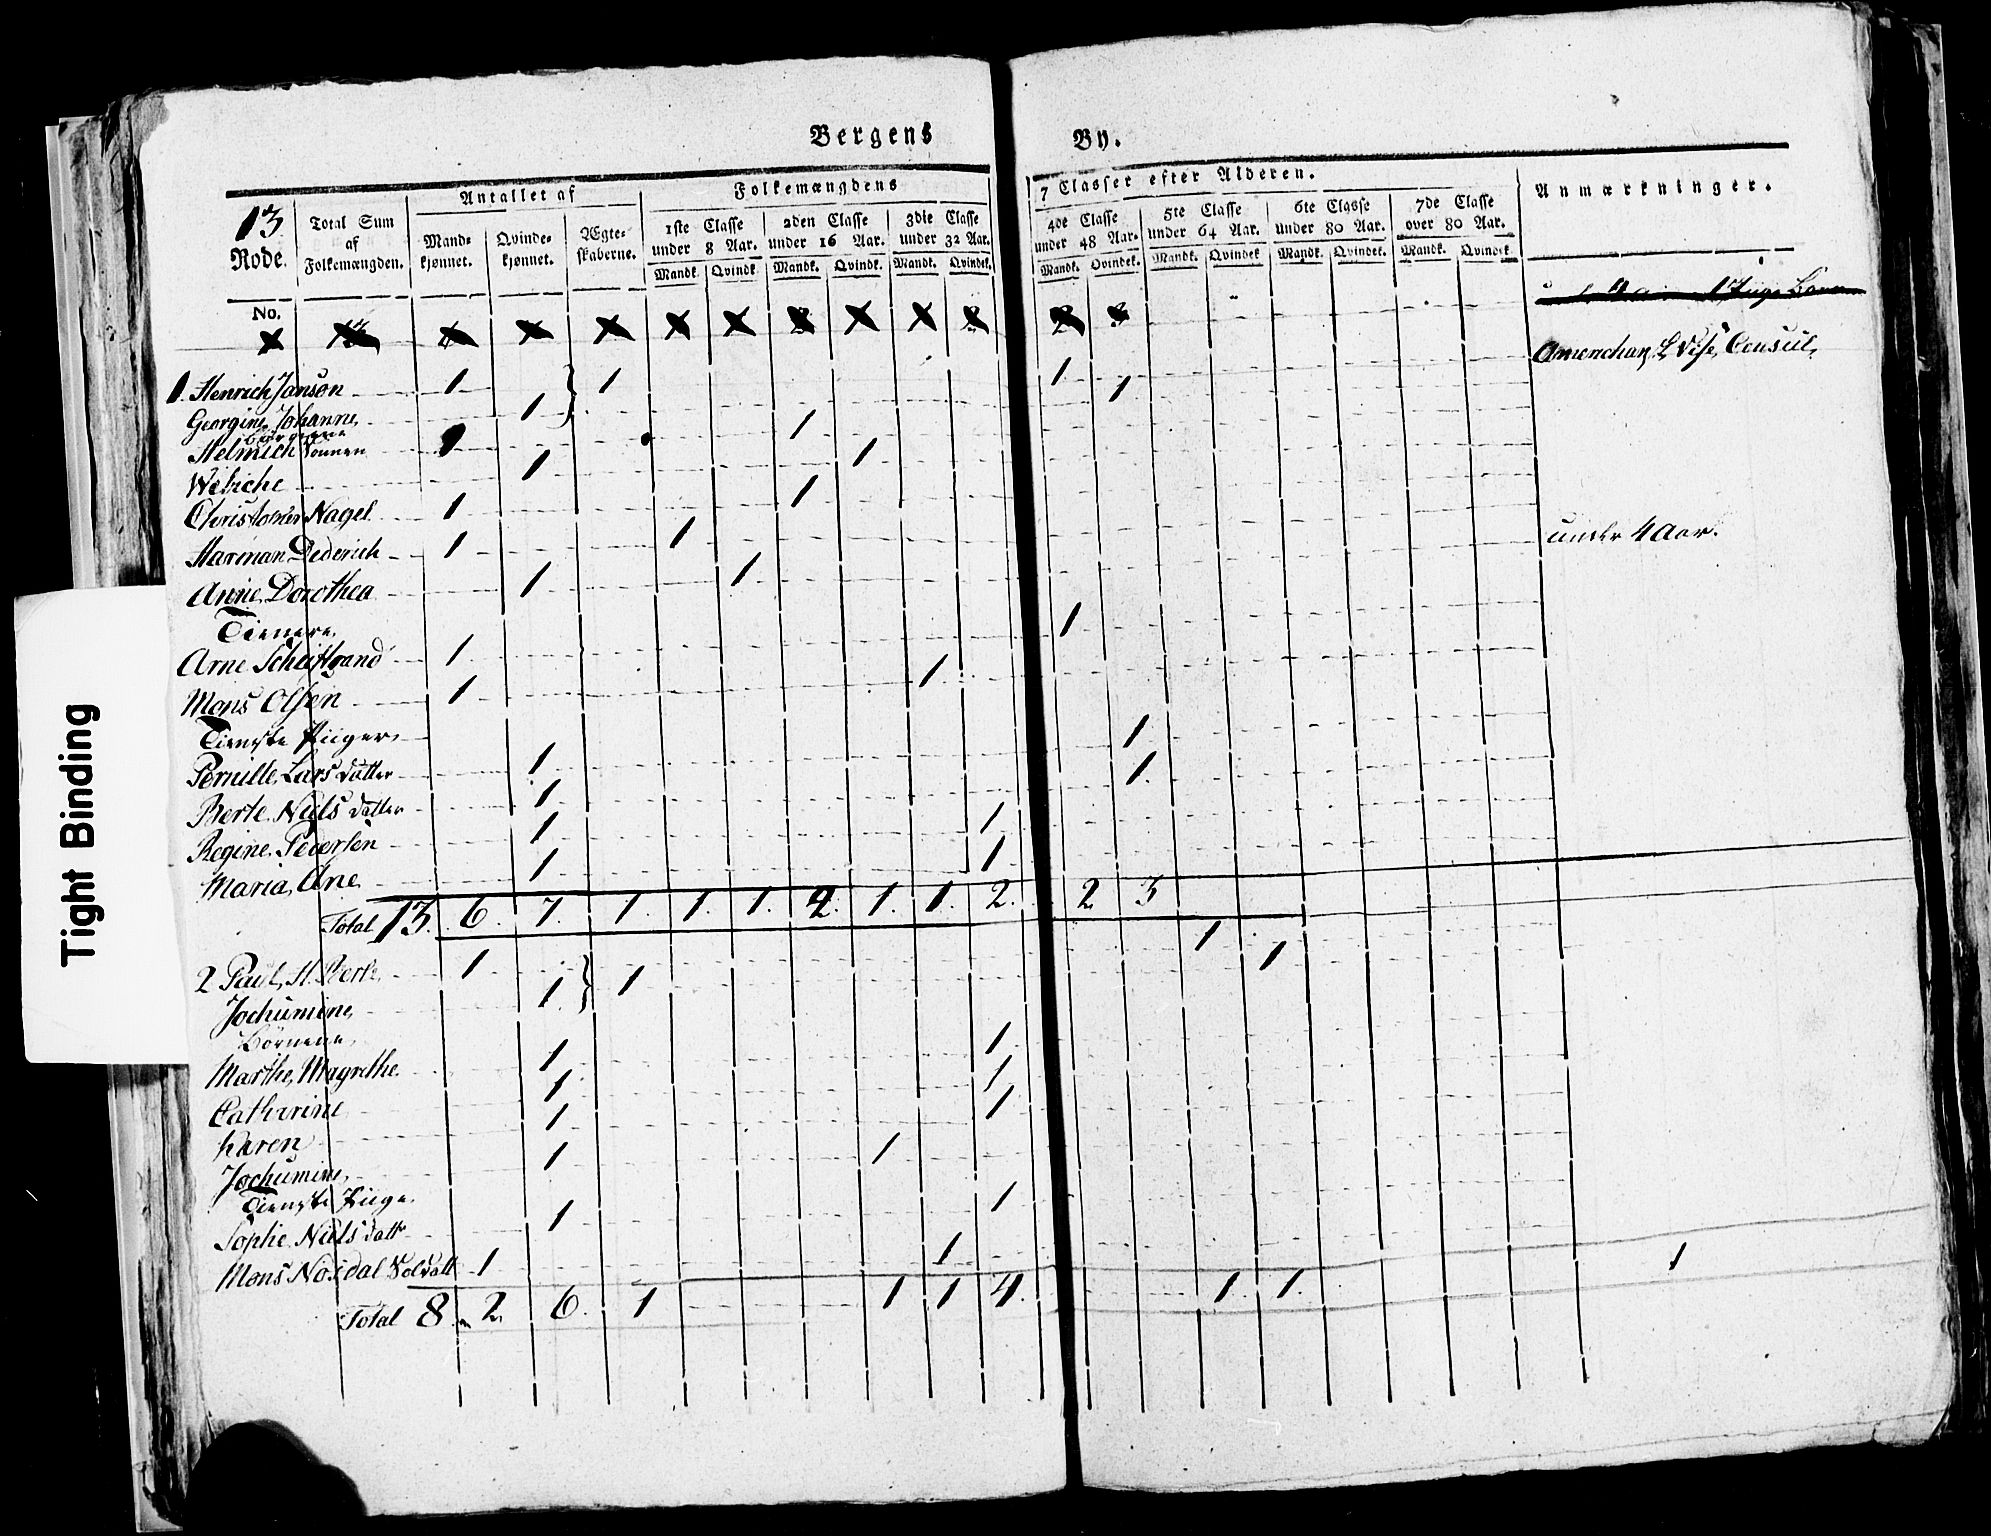 Bergens By.
13 Rode.
Total Sum af Folkemængden.
Antallet af
Mandkjønnet.
Qvindekjønnet
Ægteskaberne.
Folkemængdens 7 Classer efter Alderen.
1ste Classe under 8 Aar.
2den Classe under 16 Aar.
3die Classe under 32 Aar.
4de Classe under 48 Aar.
5te Classe under 64 Aar.
6te Classe under 80 Aar.
7de Classe over 80 Aar.
Mandk. Qvindk. Mandk. Qvindk. Mandk. Qvindek. Mandk. Qvindek. Mandk. Qvindek Mandk. Qvindek. Mandk. Qvindek.
Anmærkninger.
No.
1. Henrich Janson 1 1 1 Consul,
Georgine Johanne, 1 1
Børnene
Helmich Sønnen 1
Wibiche 1 1
Christopher Nagel 1 1
Harman Dederich 1 1 under 4 Aar.
Anne Dorothea 1 1
Tienere.
Arne 1 1
Mons Olsen 1 1
Tienste Piiger
Pernille Lars datter 1 1
Berte Niels datter 1 1
Regine Pedersen 1 1
Maria, Ane 1 1
Total 13. 6. 7. 1. 1. 1. 2. 1. 1. 2. 2 3
2 Paul, H. 1 1 1
Jochumine, 1 1
Børnene,
Marthe, Magrethe 1 1
Catherine 1 1
Karen 1 1
Jochumine, 1 1
Tienste Piige.
Sophie Niels datt 1 1
Mons Nordal Soldatt 1 1 1
Total 8 2 6. 1 1 1 4. 1. 1.
Tight Binding